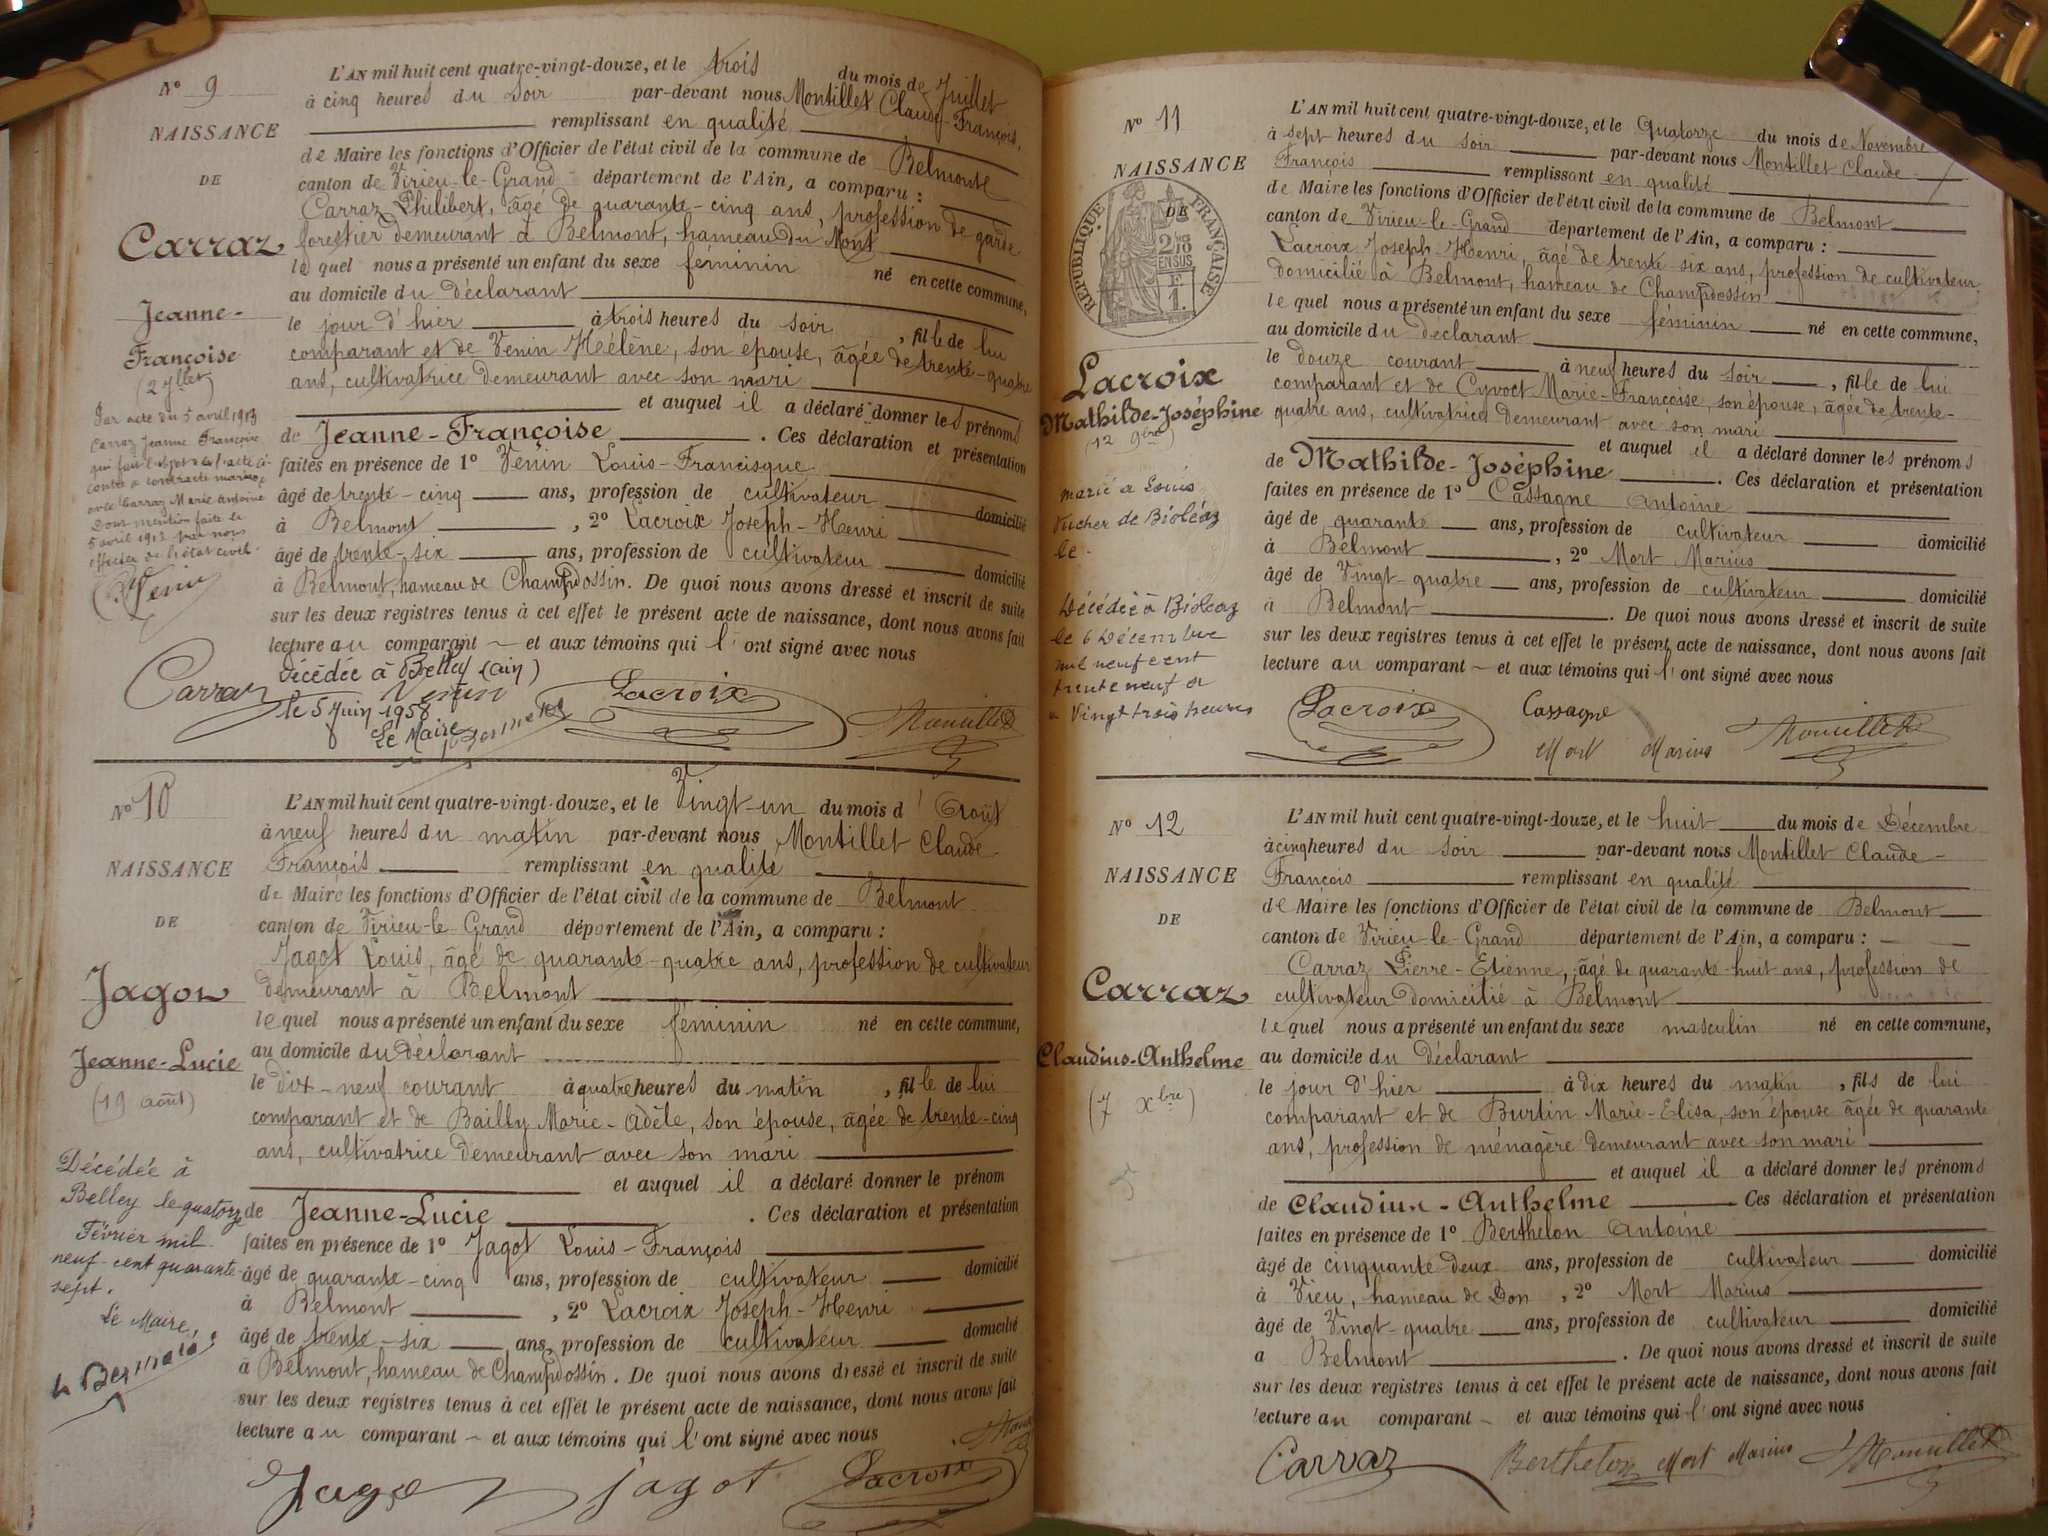 N° 9
NAISSANCE
DE
Carraz
Jeanne-
Françoise
(2 Jllet)
Par acte du 5 avril 1913
Carraz Jeanne Françoise
qui fait l'objet de l'acte ci-
contre a contracté mariage
avec Carraz Marie Antoine
Dont mention faite le
5 avril 1913 par nous
officier de l'état civil.
Venin
L'AN mil huit cent quatre-vingt-douze, et le trois du mois de Juillet
à cinq heures du soir par-devant nous Montillet Claude-François,
remplissant en qualité
de Maire les fonctions d'Officier de l'état civil de la commune de Belmont
canton de Virieu-le-Grand département de l'Ain, a comparu :
Carraz Philibert, âgé de quarante-cinq ans, profession de garde
forestier demeurant à Belmont, hameau du Mont
le quel nous a présenté un enfant du sexe féminin né en cette commune,
au domicile du déclarant
le jour d'hier à trois heures du soir, fille de lui
comparant et de Venin Hélène, son épouse, âgée de trente-quatre
ans, cultivatrice demeurant avec son mari
et auquel il a déclaré donner les prénoms
de Jeanne-Françoise. Ces déclaration et présentation
faites en présence de 1° Venin Louis-Francisque
âgé de trente-cinq ans, profession de cultivateur domicilié
à Belmont, 2° Lacroix Joseph-Henri
âgé de trente-six ans, profession de cultivateur domicilié
à Belmont, hameau de Champdossin. De quoi nous avons dressé et inscrit de suite
sur les deux registres tenus à cet effet le présent acte de naissance, dont nous avons fait
lecture au comparant ~ et aux témoins qui l'ont signé avec nous
Décédée à Belley (Ain)
Carraz Venin Lacroix Montillet
le 5 Juin 1958
Le Maire
N° 10
NAISSANCE
DE
Jagot
Jeanne-Lucie
(19 août)
Décédée à
Belley le quatorze
Février mil
neuf-cent quarante-
sept.
Le Maire,
L'AN mil huit cent quatre-vingt-douze, et le Vingt-un du mois d'Août
à neuf heures du matin par-devant nous Montillet Claude
François remplissant en qualité
de Maire les fonctions d'Officier de l'état civil de la commune de Belmont
canton de Virieu-le-Grand département de l'Ain, a comparu :
Jagot Louis, âgé de quarante-quatre ans, profession de cultivateur
demeurant à Belmont
le quel nous a présenté un enfant du sexe féminin né en cette commune,
au domicile du déclarant
le dix-neuf courant à quatre heures du matin, fille de lui
comparant et de Bailly Marie-Adèle, son épouse, âgée de trente-cinq
ans, cultivatrice demeurant avec son mari
et auquel il a déclaré donner le prénom
de Jeanne-Lucie. Ces déclaration et présentation
faites en présence de 1° Jagot Louis-François
âgé de quarante-cinq ans, profession de cultivateur domicilié
à Belmont, 2° Lacroix Joseph-Henri
âgé de trente-six ans, profession de cultivateur domicilié
à Belmont, hameau de Champdossin. De quoi nous avons dressé et inscrit de suite
sur les deux registres tenus à cet effet le présent acte de naissance, dont nous avons fait
lecture au comparant ~ et aux témoins qui l'ont signé avec nous
Jagot Jagot Lacroix
N° 11
NAISSANCE
DE
REPUBLIQUE FRANÇAISE
2/10
EN SUS
F
1.
Lacroix
Mathilde-Joséphine
(12 9bre)
marié à Louis
Vucher de Bioléaz
le.
Décédée à Bioléaz
le 6 Décembre
mil neuf cent
trente neuf à
Vingt trois heures
L'AN mil huit cent quatre-vingt-douze, et le Quatorze du mois de Novembre
à sept heures du soir par-devant nous Montillet Claude-
François remplissant en qualité
de Maire les fonctions d'Officier de l'état civil de la commune de Belmont
canton de Virieu-le-Grand département de l'Ain, a comparu :
Lacroix Joseph-Henri, âgé de trente-six ans, profession de cultivateur
domicilié à Belmont, hameau de Champdossin
le quel nous a présenté un enfant du sexe féminin né en cette commune,
au domicile du déclarant
le douze courant à neuf heures du soir, fille de lui
comparant et de Cyvoct Marie-Françoise, son épouse, âgée de trente-
quatre ans, cultivatrice demeurant avec son mari
et auquel il a déclaré donner les prénoms
de Mathilde-Joséphine. Ces déclaration et présentation
faites en présence de 1° Cassagne Antoine
âgé de quarante ans, profession de cultivateur domicilié
à Belmont, 2° Mort Marius
âgé de Vingt-quatre ans, profession de cultivateur domicilié
à Belmont. De quoi nous avons dressé et inscrit de suite
sur les deux registres tenus à cet effet le présent acte de naissance, dont nous avons fait
lecture au comparant ~ et aux témoins qui l'ont signé avec nous
Lacroix Cassagne Montillet
Mort Marius
N° 12
NAISSANCE
DE
Carraz
Claudius-Anthelme
(7 Xbre)
L'AN mil huit cent quatre-vingt-douze, et le huit du mois de Décembre
à cinq heures du soir par-devant nous Montillet Claude-
François remplissant en qualité
de Maire les fonctions d'Officier de l'état civil de la commune de Belmont
canton de Virieu-le-Grand département de l'Ain, a comparu :
Carraz Pierre-Etienne, âgé de quarante-huit ans, profession de
cultivateur domicilié à Belmont
le quel nous a présenté un enfant du sexe masculin né en cette commune,
au domicile du déclarant
le jour d'hier à dix heures du matin, fils de lui
comparant et de Burtin Marie-Elisa, son épouse âgée de quarante
ans, profession de ménagère demeurant avec son mari
et auquel il a déclaré donner les prénoms
de Claudius-Anthelme Ces déclaration et présentation
faites en présence de 1° Berthelon Antoine
âgé de cinquante deux ans, profession de cultivateur domicilié
à Vieu, hameau de Don, 2° Mort Marius
âgé de Vingt-quatre ans, profession de cultivateur domicilié
à Belmont. De quoi nous avons dressé et inscrit de suite
sur les deux registres tenus à cet effet le présent acte de naissance, dont nous avons fait
lecture au comparant ~ et aux témoins qui l'ont signé avec nous
Carraz Berthelon Mort Marius Montillet